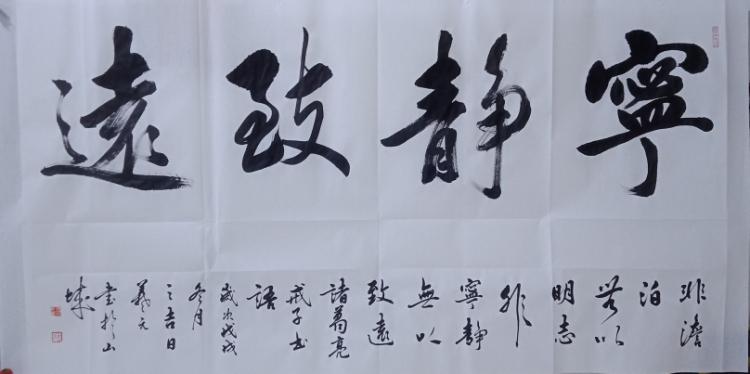 寧静致遠
非澹
泊
無以
明志
非
寧静
無以
致遠
諸葛亮
戒子書
語
歲次戊戌
冬月
之吉日
書於山
城